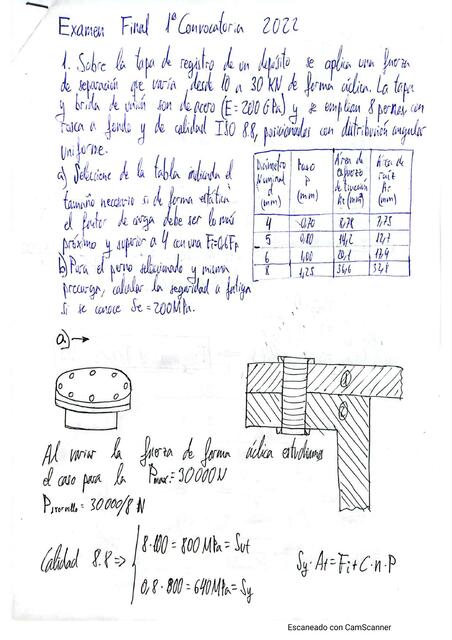 Examen Final 1ª Convocatoria 2022
1. Sobre la tapa de registro de un depósito se aplica una fuerza
de separación que varía desde 10 a 30 KN de forma cíclica. La tapa
y brida de unión son de acero (E = 200 GPa) y se emplean 8 pernos, con
rosca a fondo y de calidad ISO 8.8, posicionados con distribución angular
uniforme.
a) Seleccione de la tabla indicando el
tamaño necesario si de forma estática
el factor de carga debe ser lo más
próximo y superior a 4 con una Fi=0,6Fp
b) Para el perno seleccionado y misma
precarga, calcular la seguridad a fatiga
si se conoce Se = 200MPa.
Diámetro nominal d (mm) Paso P (mm) Área de esfuerzo de tracción At (mm) Área de raíz Ar (mm)
4 0,70 8,78 7,75
5 0,80 14,2 12,7
6 1,00 20,1 17,9
8 1,25 36,6 32,8
a) →
1
2
Al variar la fuerza de forma cíclica estudiamos
el caso para la Pmax = 30000N
Ptornillo = 30000/8 N
Calidad 8.8 => 8·100 = 800 MPa = Sut
0,8·800 = 640MPa = Sy
Sy·At = Fi + C·n·P
Escaneado con CamScanner